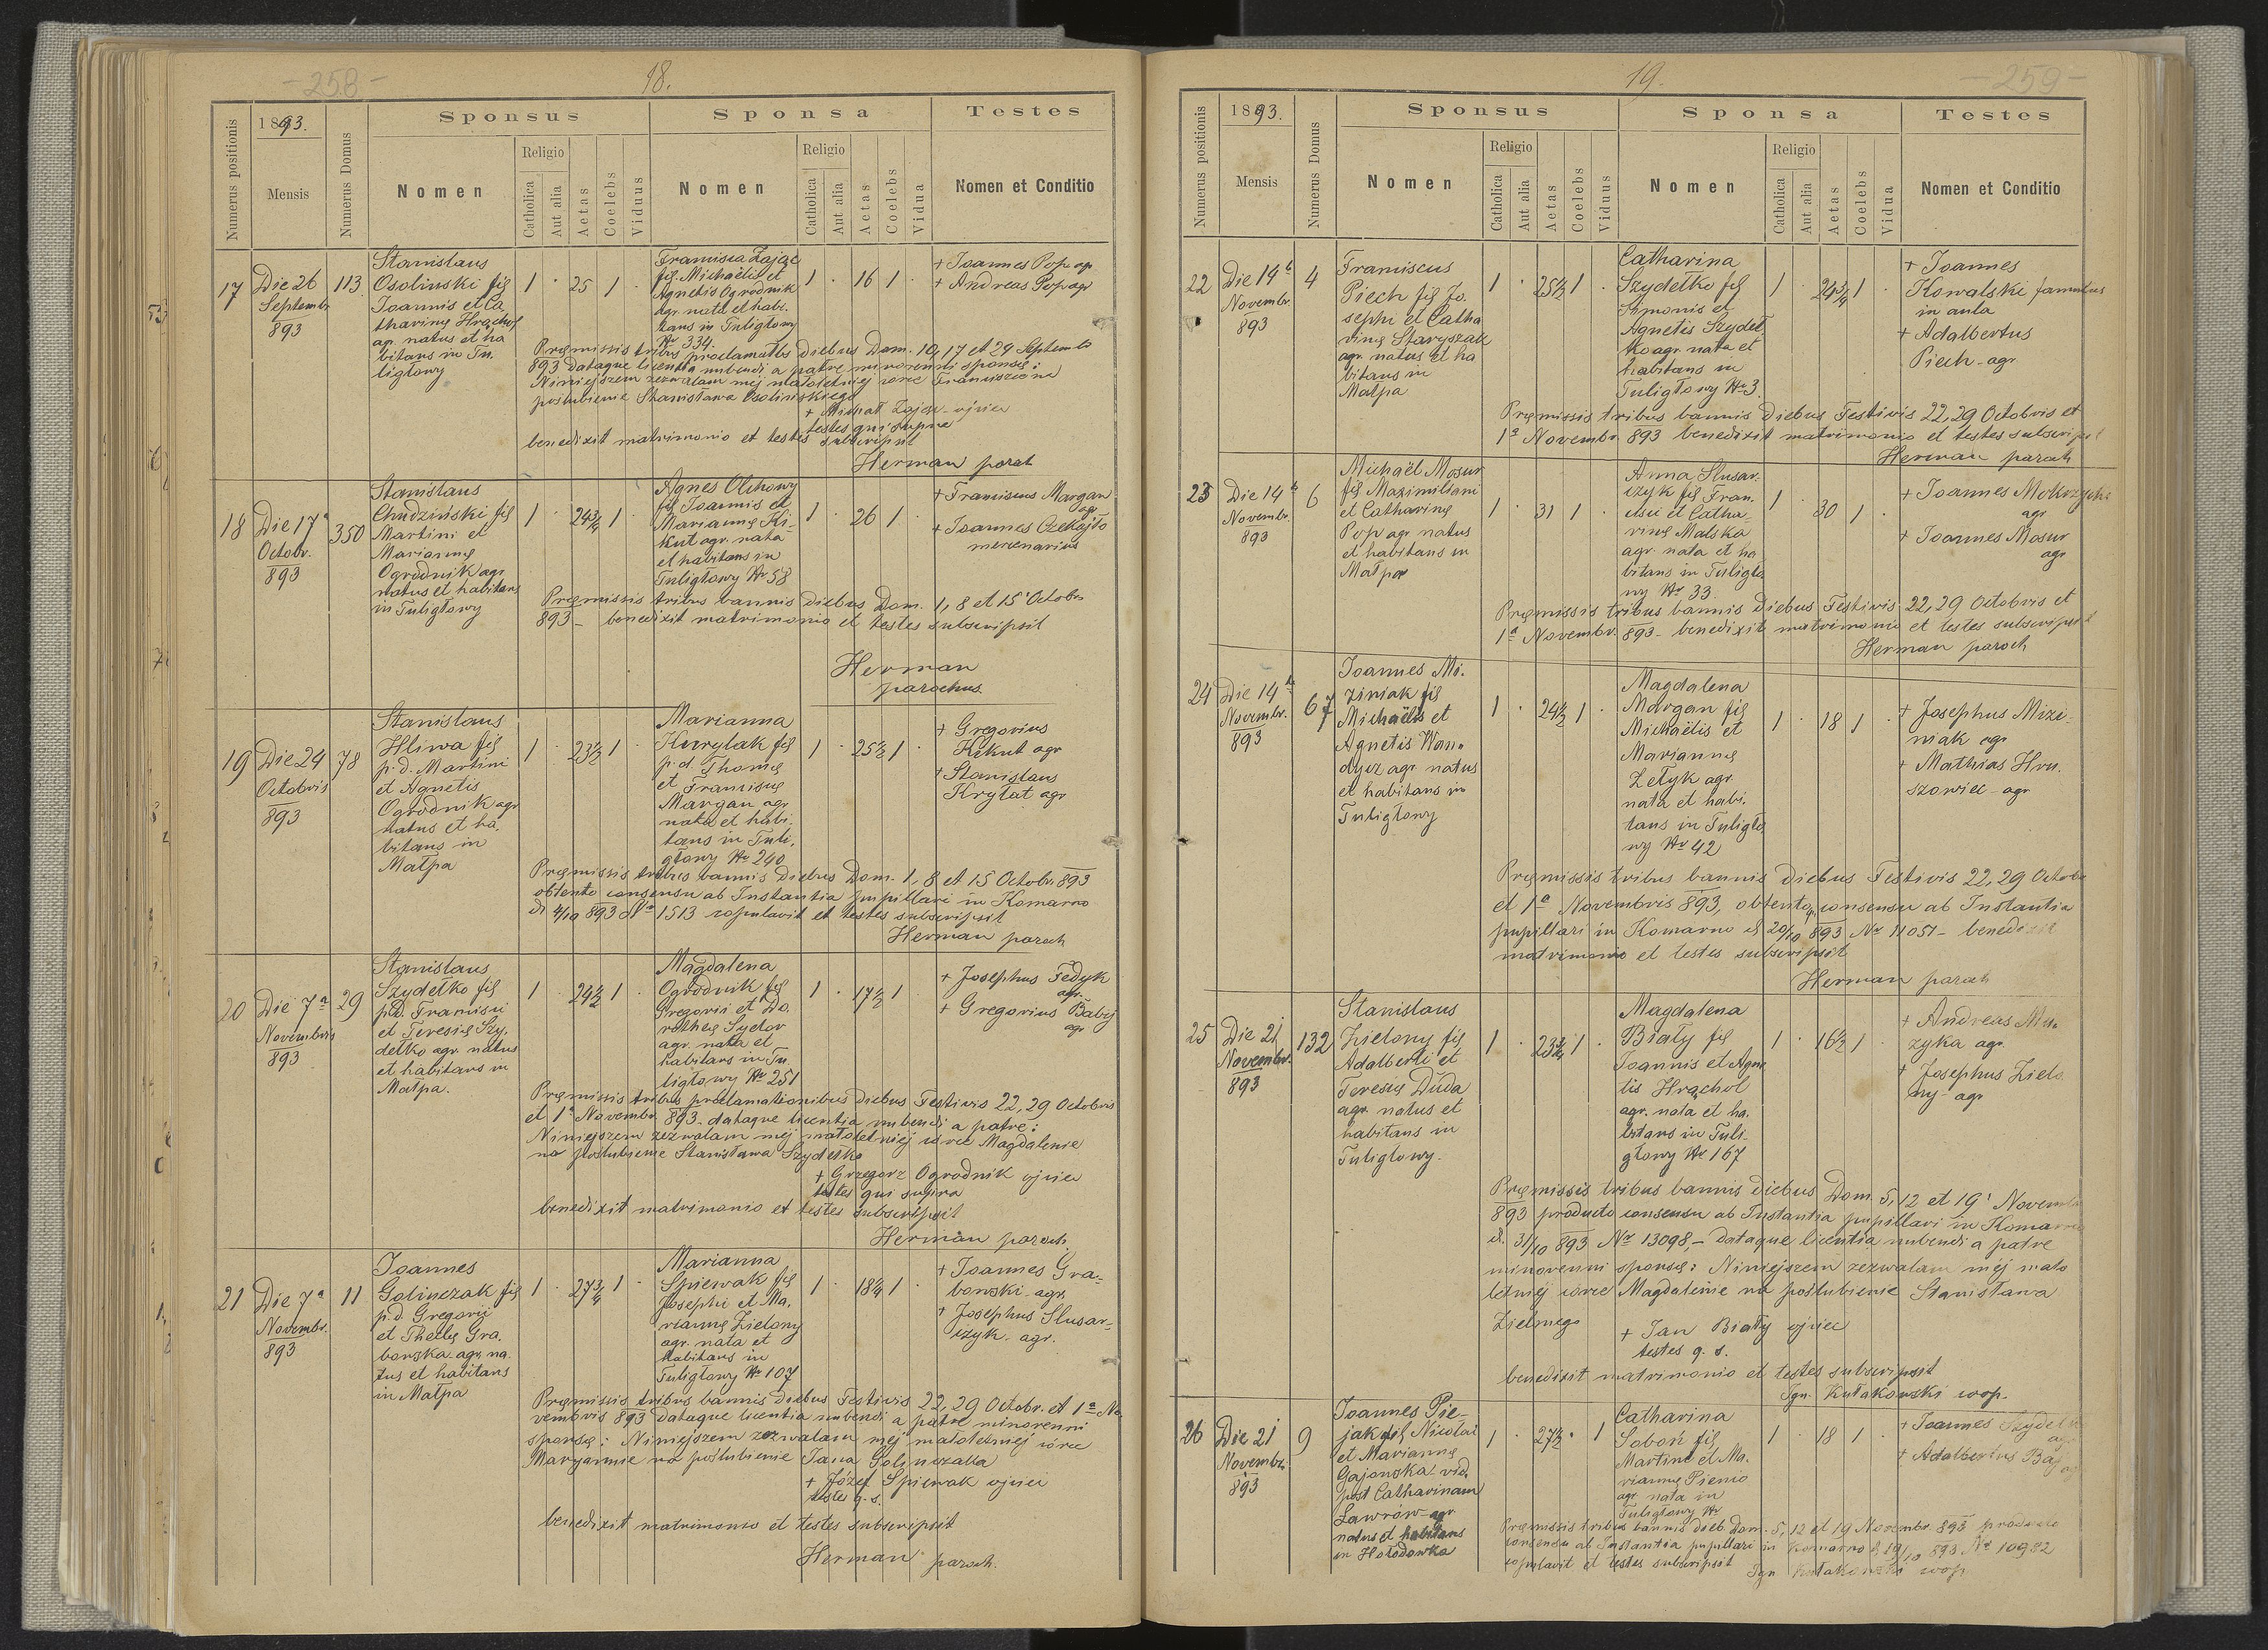 - 258 -
18.
Numerus positionis
1893.
Mensis
Numerus Domus
Sponsus
Nomen
Religio
Catholica
Aut alia
Aetas
Coelebs
Viduus
Sponsa
Nomen
Religio
Catholica
Aut alia
Aetas
Coelebs
Vidua
Testes
Nomen et Conditio
17
Die 26
Septembr
893
113
Stanislaus
Osolinski fil
Joannis et Ca.
tharinę Hrąchol
agr. natus et ha
bitans in Tu.
ligłowy
1 · 25 1 ·
Francisca Zając
fil. Michaëlis et
Agnetis Ogrodnik
agr. nata et habi.
tans in Tuligłowy
Nr 334.
1 · 16 1 ·
+ Joannes Pop agr
+ Andreas Pop agr
Pręmissis tribus proclamatbs diebus Dom. 10, 17 et 24 Septembr
893 dataque licentia nubendi a patre minorenni sponsę:
Niniejszem zezwalam mej małoletniej córce Franciszce na
poślubienie Stanisława Osolińskiego
+ Michał Zając - ojciec
testes qui supra
benedixit matrimonio et testes subscripsit
Herman paroch
18
Die 17a
Octobr.
893
350
Stanislaus
Chudziński fil
Martini et
Mariannę
Ogrodnik agr
natus et habitans
in Tuligłowy
1 · 24¾ 1 ·
Agnes Olchowy
fil Joannis et
Mariannę Ki-
kut agr. nata
et habitans in
Tuligłowy Nr 58
1 · 26 1 ·
+ Franciscus Margan
agr
+ Joannes Czekajło
mercenarius
Pręmissis tribus bannis diebus Dom. 1, 8 et 15 Octobr
893 - benedixit matrimonio et testes subscripsit
Herman
parochus.
19
Die 24
Octobris
893
78
Stanislaus
Hliwa fil
p.d. Martini
et Agnetis
Ogrodnik agr
natus et ha.
bitans in
Małpa
1 · 23½ 1 ·
Marianna
Kurylak fil
p.d. Thomę
et Franciscę
Margan agr
nata et habi.
tans in Tuli.
głowy Nr 240
1 · 25½ 1 ·
+ Gregorius
Kikut agr
+ Stanislaus
Kryłat agr
Pręmissis tribus bannis diebus Dom. 1, 8 et 15 Octobr 893
obtento consensu ab Instantia pupillari in Komarno
d. 4/10 893 Nr 1513 copulavit et testes subscripsit
Herman paroch
20
Die 7a
Novembris
893
29
Stanislaus
Szydełko fil
p.d. Francisci
et Teresię Szy.
dełko agr. natus
et habitans in
Małpa.
1 · 24½ 1 ·
Magdalena
Ogrodnik fil
Gregorii et Do.
rotheę Sydor
agr. nata et
habitans in Tu
ligłowy Nr 251
1 · 17½ 1
+ Josephus Fedyk
agr.
+ Gregorius Babij
agr
Pręmissis tribus proclamationibus diebus Festivis 22, 29 Octobris
et 1a Novembr. 893. dataque licentia nubendi a patre:
Niniejszem zezwalam mej małoletniej córce Magdalenie
na poślubienie Stanisława Szydełko
+ Grzegorz Ogrodnik ojciec
testes qui supra
benedixit matrimonio et testes subscripsit
Herman paroch
21
Die 7a
Novembr.
893
11
Joannes
Golinczak fil
p.d. Gregorij
et Theclę Gra.
bowska. agr. na.
tus et habitans
in Małpa
1 · 27¾ 1 ·
Marianna
Spiewak fil
Josephi et Ma.
riannę Zielony
agr. nata et
habitans in
Tuligłowy Nr 107
1 · 18¼ 1 ·
+ Joannes Gra-
bowski - agr.
+ Josephus Slusar-
czyk - agr.
Pręmissis tribus bannis diebus Festivis 22, 29 Octobr. et 1a No
vembris 893 dataque licentia nubendi a patre minorenni
sponsę: Niniejszem zezwalam mej małoletniej córce
Maryannie na poślubienie Jana Golinczaka
+ Józef Spiewak ojciec
testes q. s.
benedixit matrimonio et testes subscripsit
Herman paroch.
19.
- 259 -
Numerus positionis
1893.
Mensis
Numerus Domus
Sponsus
Nomen
Religio
Catholica
Aut alia
Aetas
Coelebs
Viduus
Sponsa
Nomen
Religio
Catholica
Aut alia
Aetas
Coelebs
Vidua
Testes
Nomen et Conditio
22
Die 14
Novembr.
893
4
Franciscus
Piech fil Jo.
sephi et Catha
rinę Staryszak
agr. natus et ha
bitans in
Małpa
1 · 25½ 1 ·
Catharina
Szydełko fil
Simonis et
Agnetis Szydeł
ko agr. nata et
habitans in
Tuligłowy Nr 3.
1 · 24¾ 1 ·
+ Joannes
Kowalski famulus
in aula
+ Adalbertus
Piech - agr
Pręmissis tribus bannis diebus Festivis 22, 29 Octobris et
1a Novembr. 893 benedixit matrimonio et testes subscripsit
Herman paroch
23
Die 14
Novembr.
893
6
Michaël Mosur
fil Maximiliani
et Catharinę
Pop agr natus
et habitans in
Małpa
1 · 31 1 ·
Anna Slusar.
czyk fil Fran.
cisci et Catha-
rinę Malska
agr. nata et ha
bitans in Tuligło
wy Nr 33.
1 · 30 1 ·
+ Joannes Mokrzycki
agr
+ Joannes Mosur
agr
Pręmissis tribus bannis diebus Festivis 22, 29 Octobris et
1a Novembr. 893 - benedixit matrimonio et testes subscripsit
Herman paroch
24
Die 14
Novembr.
893
67
Joannes Mi.
ziniak fil
Michaëlis et
Agnetis Wan.
dycz agr. natus
et habitans in
Tuligłowy
1 · 24½ 1 ·
Magdalena
Margan fil
Michaëlis et
Mariannę
Zełyk agr.
nata et habi.
tans in Tuligło
wy Nr 42
1 · 18 1 ·
+ Josephus Mizi-
niak agr
+ Mathias Hru.
szowiec - agr
Pręmissis tribus bannis diebus Festivis 22, 29 Octobr
et 1a Novembris 893, obtento consensu ab Instantia
pupillari in Komarno d. 20/10 893 Nr 11051 - benedixit
matrimonio et testes subscripsit
Herman paroch
25
Die 21
Novembr.
893
132
Stanislaus
Zielony fil
Adalberti et
Teresię Duda
agr. natus et
habitans in
Tuligłowy.
1 · 23¾ 1 ·
Magdalena
Biały fil
Joannis et Agne
tis Hrąchol
agr. nata et ha.
bitans in Tuli-
głowy Nr 167
1 · 16½ 1 ·
+ Andreas Mu.
zyka agr.
+ Josephus Zielo
ny - agr
Pręmissis tribus bannis diebus Dom. 5, 12 et 19 Novembr
893 producto consensu ab Instantia pupillari in Komarno
d. 31/10 893 Nr 13098, - dataque licentia nubendi a patre
minorenni sponsę: Niniejszem zezwalam mej mało
letniej córce Magdalenie na poślubienie Stanisława
Zielnego
+ Jan Biały ojciec
testes q. s.
benedixit matrimonio et testes subscripsit
Ign. Kułakowski coop.
26
Die 21
Novembr.
893
9
Joannes Pie-
jak fil Nicolai
et Mariannę
Gajowska. vid.
post Catharinam
Ławrów agr
natus et habitans
in Hołodówka
1 · 27½ · 1
Catharina
Soboń fil
Martini et Ma.
riannę Pienio
agr. nata in
Tuligłowy Nr
1 · 18 1 ·
+ Joannes Szydełko
agr
+ Adalbertus
Pręmissis tribus bannis dieb. Dom. 5, 12 et 19 Novembr. 893 producto
consensu ab Instantia pupillari in Komarno d. 19/10 893 Nr 10982
copulavit et testes subscripsit
Ign Kułakowski coop